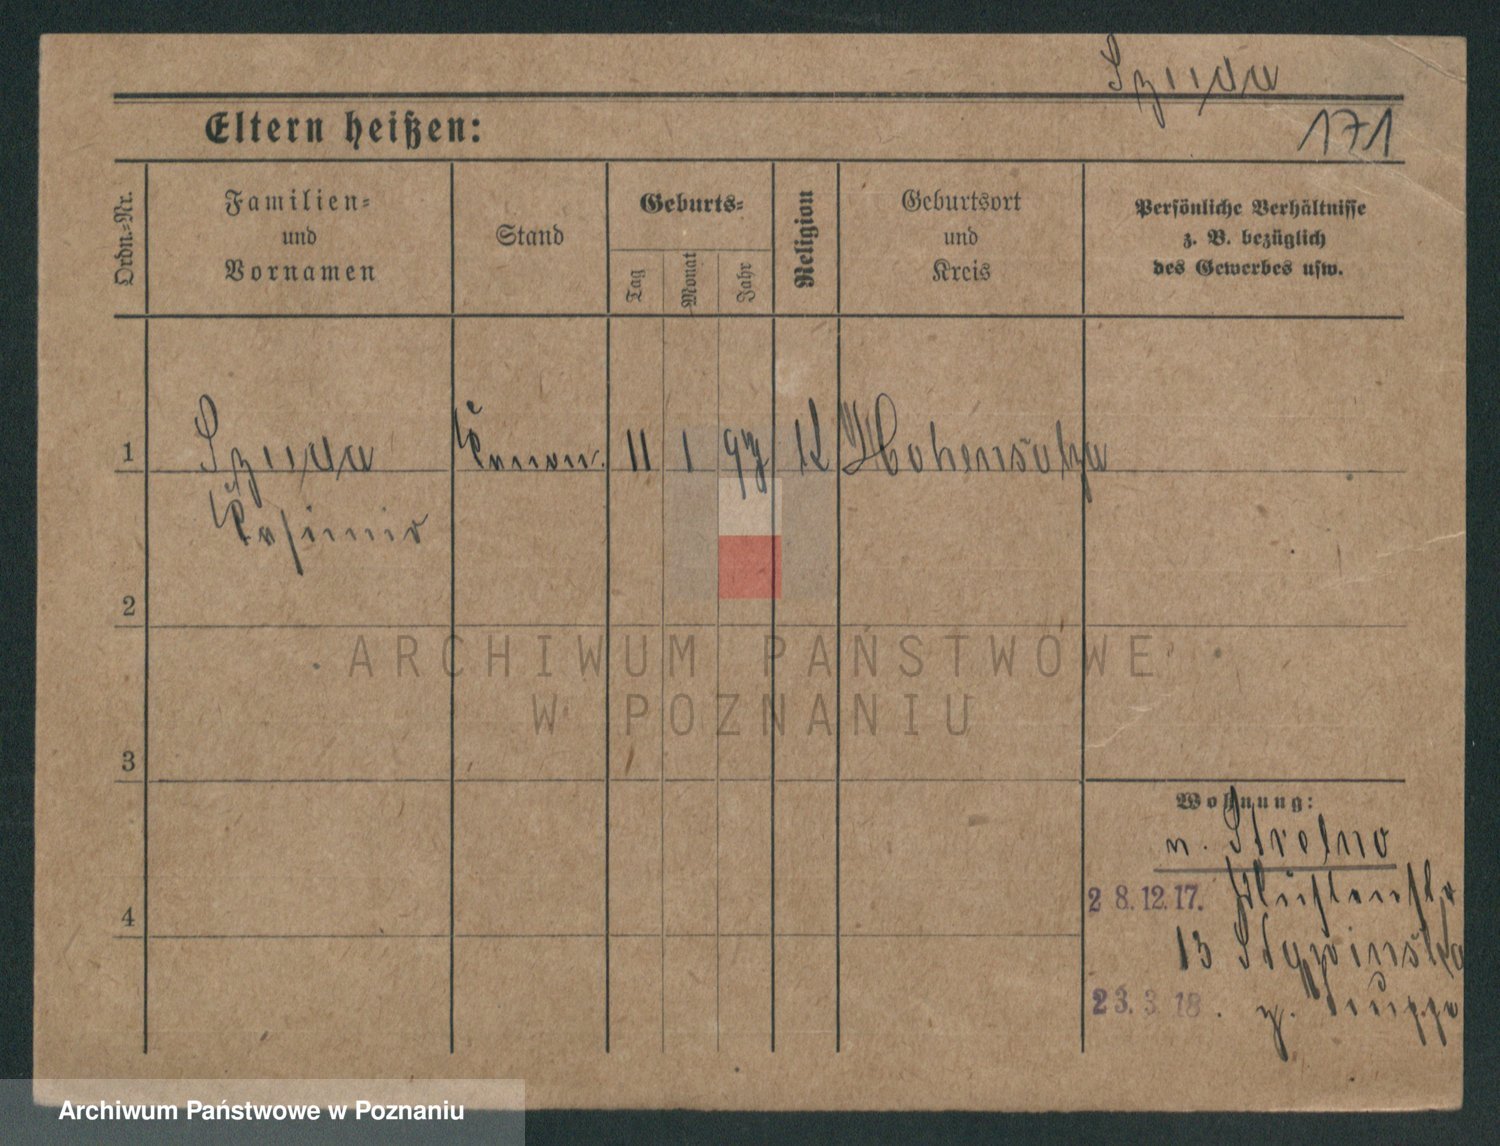 Szuda
Eltern heißen:
171
Ordn.-Nr.
Familien-
und
Vornamen
Stand
Geburts-
Tag
Monat
Jahr
Religion
Geburtsort
und
Kreis
Persönliche Verhältnisse
z. B. bezüglich
des Gewerbes usw.
1
Szuda
11 1 97 K Hohensalza
Casimir
2
ARCHIWUM PAŃSTWOWE
W POZNANIU
3
Wohnung:
n. Strelno
28.12.17.
4
13
23.3.18.
z.
Archiwum Państwowe w Poznaniu